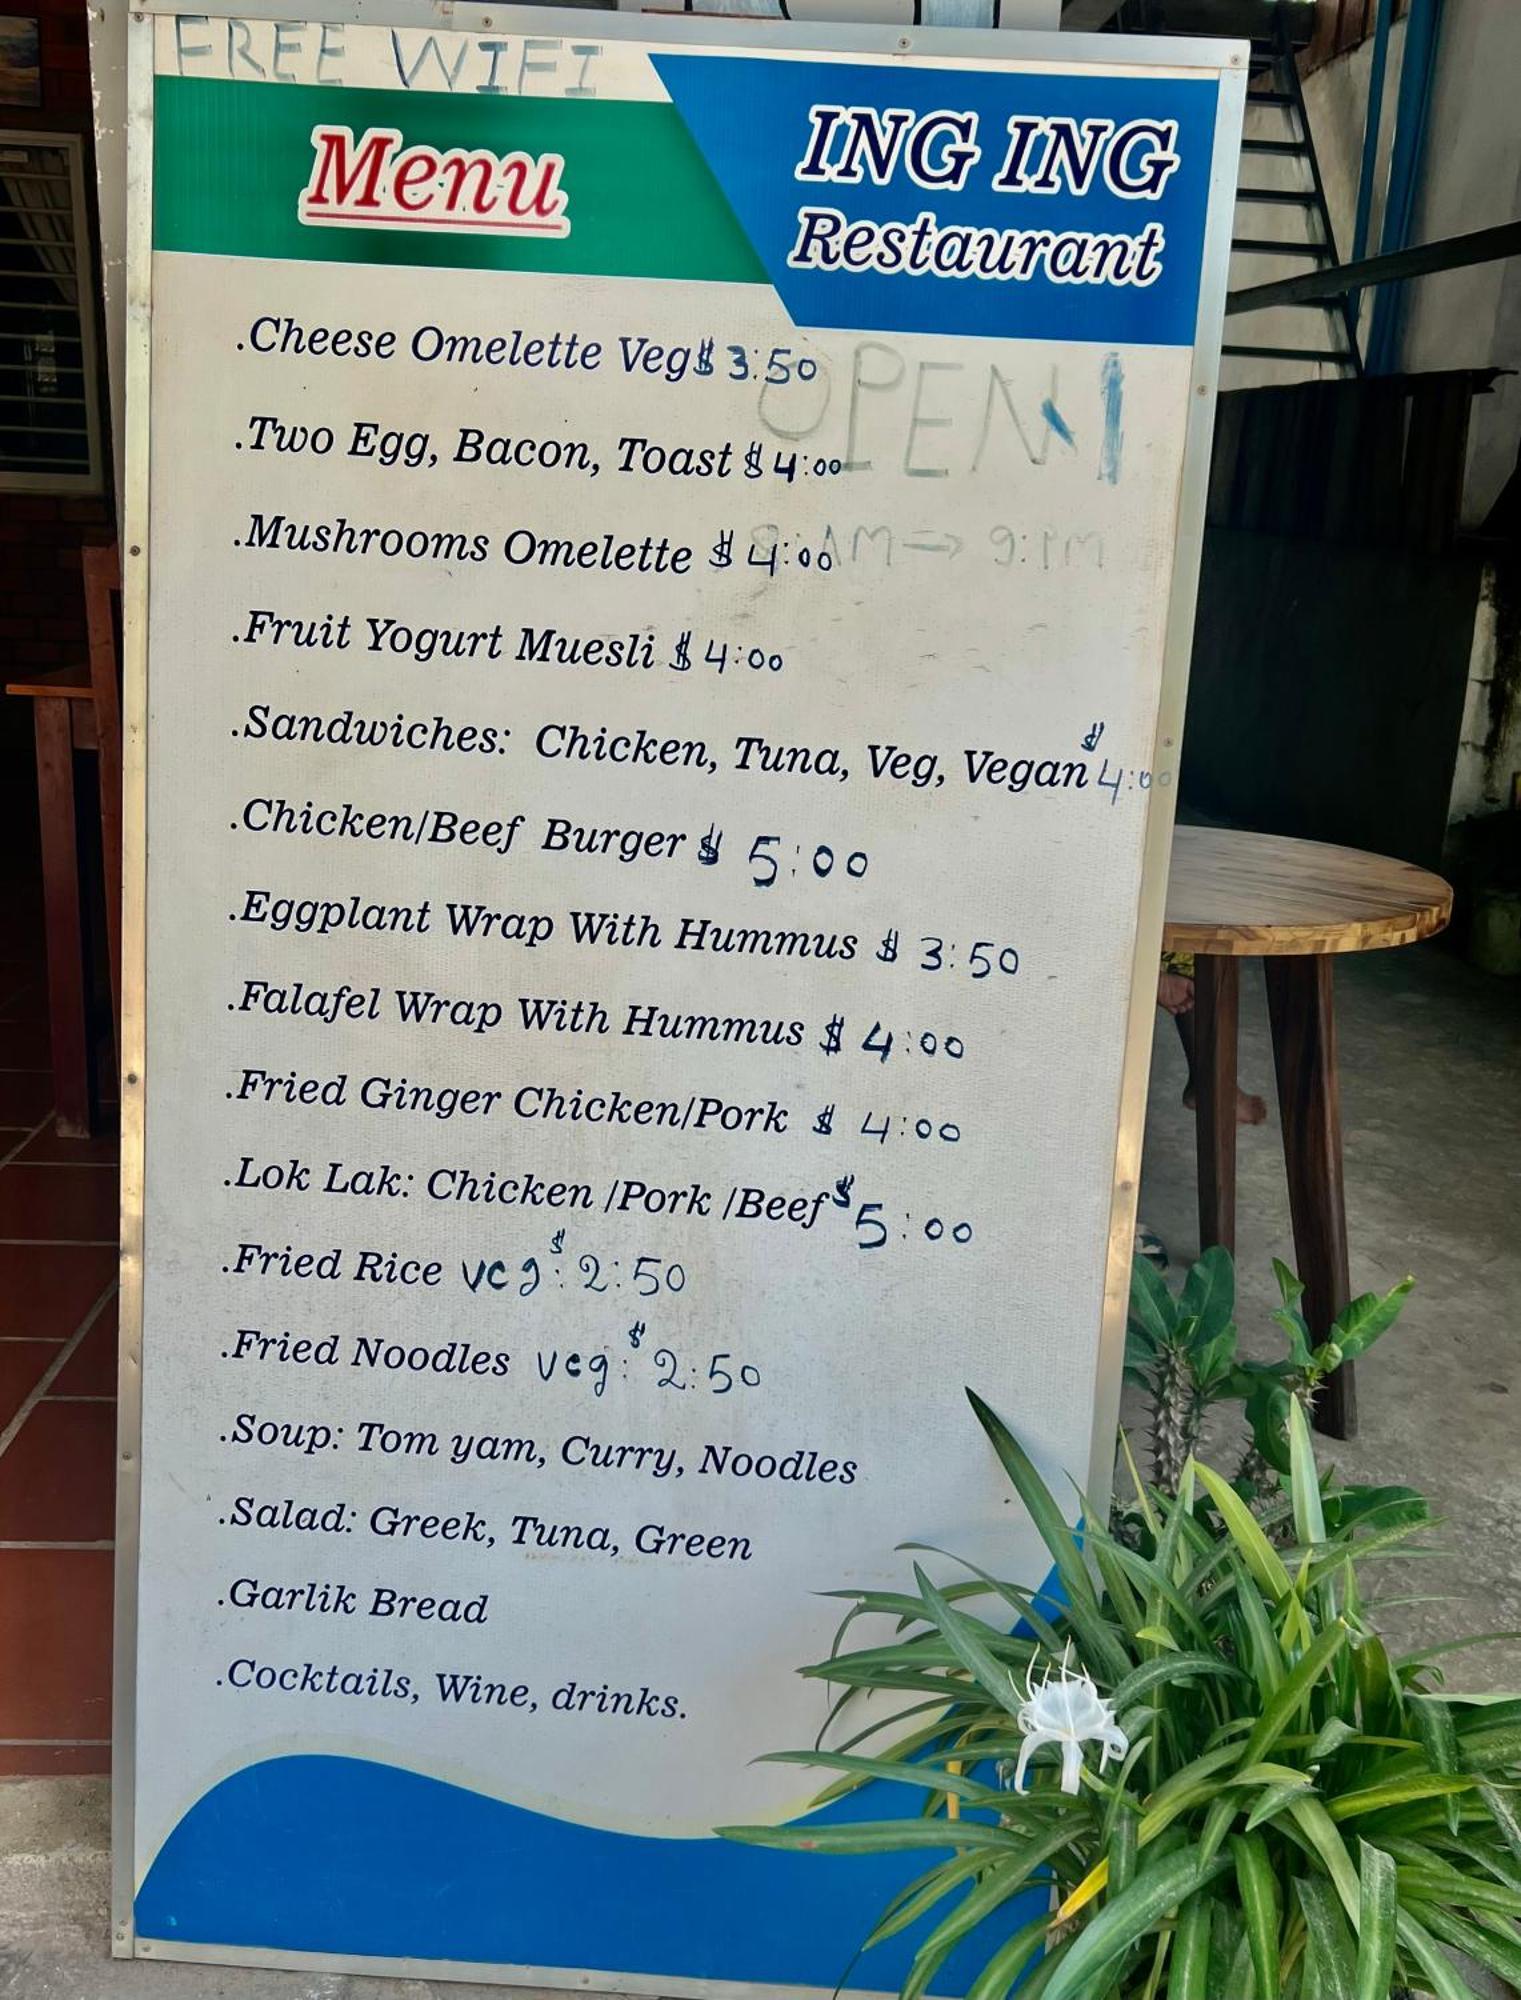 FREE WIFI
Menu
ING ING
Restaurant
.Cheese Omelette Veg $ 3:50
OPEN
.Two Egg, Bacon, Toast $ 4:00
.Mushrooms Omelette $ 4:00
8:AM → 9:PM
.Fruit Yogurt Muesli $ 4:00
.Sandwiches: Chicken, Tuna, Veg, Vegan $ 4:00
.Chicken/Beef Burger $ 5:00
.Eggplant Wrap With Hummus $ 3:50
.Falafel Wrap With Hummus $ 4:00
.Fried Ginger Chicken/Pork $ 4:00
.Lok Lak: Chicken /Pork /Beef $ 5:00
.Fried Rice veg: $ 2:50
.Fried Noodles veg: $ 2:50
.Soup: Tom yam, Curry, Noodles
.Salad: Greek, Tuna, Green
.Garlik Bread
.Cocktails, Wine, drinks.